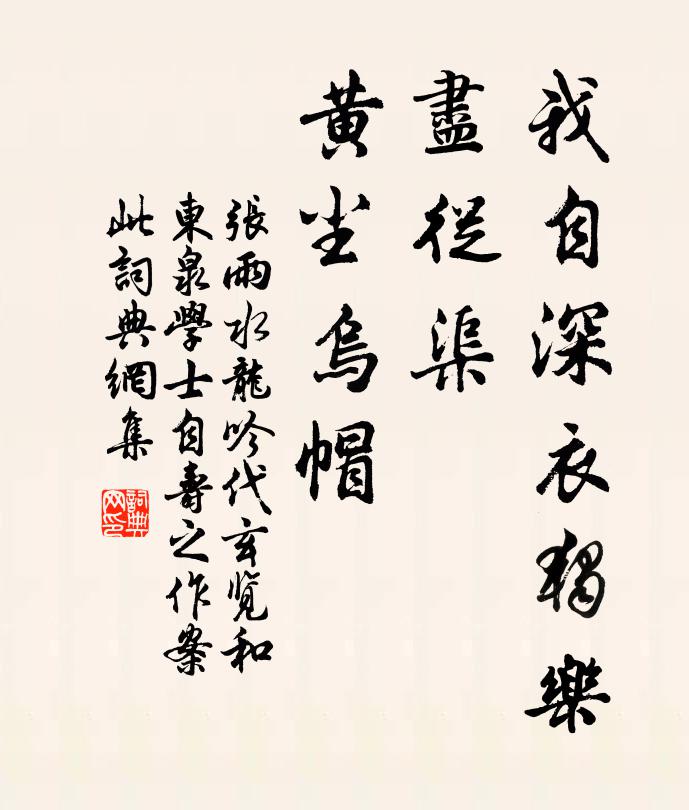 我自深衣獨樂
盡從渠
黄尘烏帽
張雨水龍吟代玄覽和
東泉學士自壽之作案
此詞典網集
詞典网印